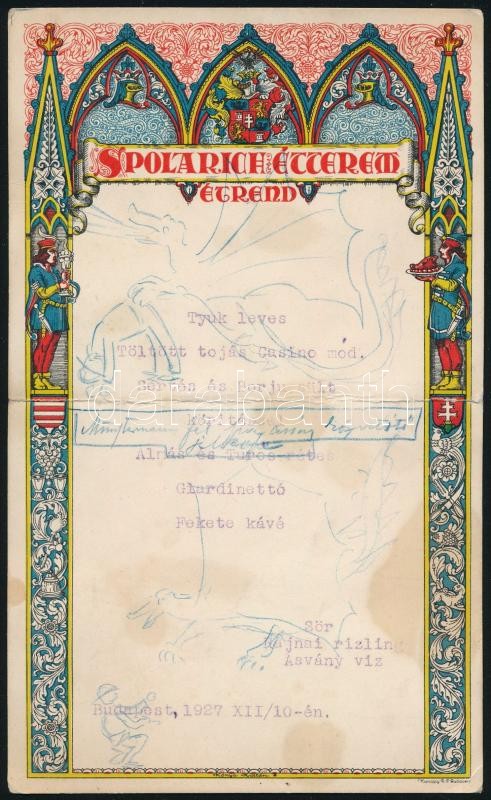 SPOLARICH ÉTTEREM
ÉTREND
Tyuk leves
Töltött tojás Casino mód.
Sertés és Borju sült
Körités
Almás és Turos rétes
Giardinettó
Fekete kávé
Sör
Rajnai rizling
Ásvány viz
Budapest, 1927 XII/10-én.
darabanth